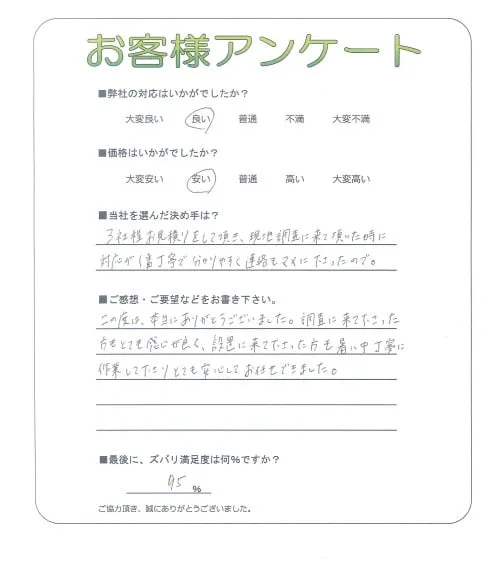 お客様アンケート
■弊社の対応はいかがでしたか？
大変良い 良い 普通 不満 大変不満
■価格はいかがでしたか？
大変安い 安い 普通 高い 大変高い
■当社を選んだ決め手は？
3社様お見積りをして頂き、現地調査に来て頂いた時に
対応が1番丁寧で分かりやすく連絡もマメに下さったので。
■ご感想・ご要望などをお書き下さい。
この度は、本当にありがとうございました。調査に来て下さった
方もとても感じが良く、設置に来て下さった方も暑い中丁寧に
作業して下さりとても安心してお任せできました。
■最後に、ズバリ満足度は何%ですか？
95 %
ご協力頂き、誠にありがとうございました。